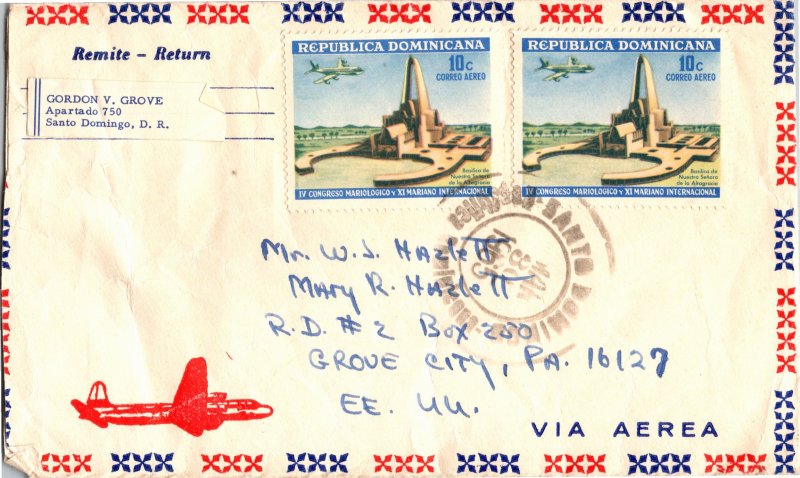 Remite - Return
GORDON V. GROVE
Apartado 750
Santo Domingo, D. R.
REPUBLICA DOMINICANA
10c
CORREO AEREO
Basilica de
Nuestra Señora
de la Altagracia
IV CONGRESO MARIOLOGICO y XI MARIANO INTERNACIONAL
REPUBLICA DOMINICANA
10c
CORREO AEREO
Basilica de
Nuestra Señora
de la Altagracia
IV CONGRESO MARIOLOGICO y XI MARIANO INTERNACIONAL
SANTO DOMIN
Mr. W. J. Hazlett
Mary R. Hazlett
R.D. # 2 Box 250
GROVE CITY, PA. 16127
EE. UU.
VIA AEREA